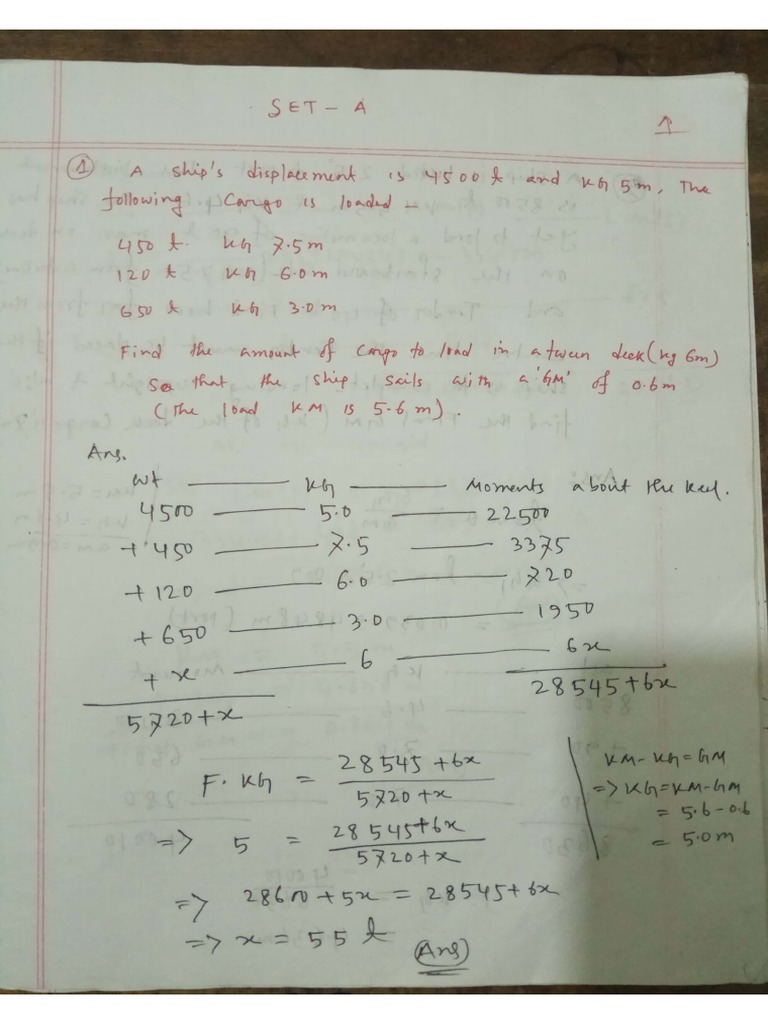 SET - A
① A ship's displacement is 4500 t and KG 5m, The
following Cargo is loaded -
450 t. KG 7.5m
120 t KG 6.0m
650 t KG 3.0m
Find the amount of cargo to load in a tween deck (kg 6m)
So that the ship sails with a 'GM' of 0.6m
(The load KM is 5.6m).
Ans.
wt — KG — Moments about the keel.
4500 — 5.0 — 22500
+ 450 — 7.5 — 3375
+ 120 — 6.0 — 720
+ 650 — 3.0 — 1950
+ x — 6 — 6x
5720+x 28545+6x
F. KG = 28545 +6x / 5720+x
=> 5 = 28545+6x / 5720+x
=> 28600 + 5x = 28545+6x
=> x = 55 t (Ans)
KM - KG = GM
=> KG = KM - GM
= 5.6 - 0.6
= 5.0m